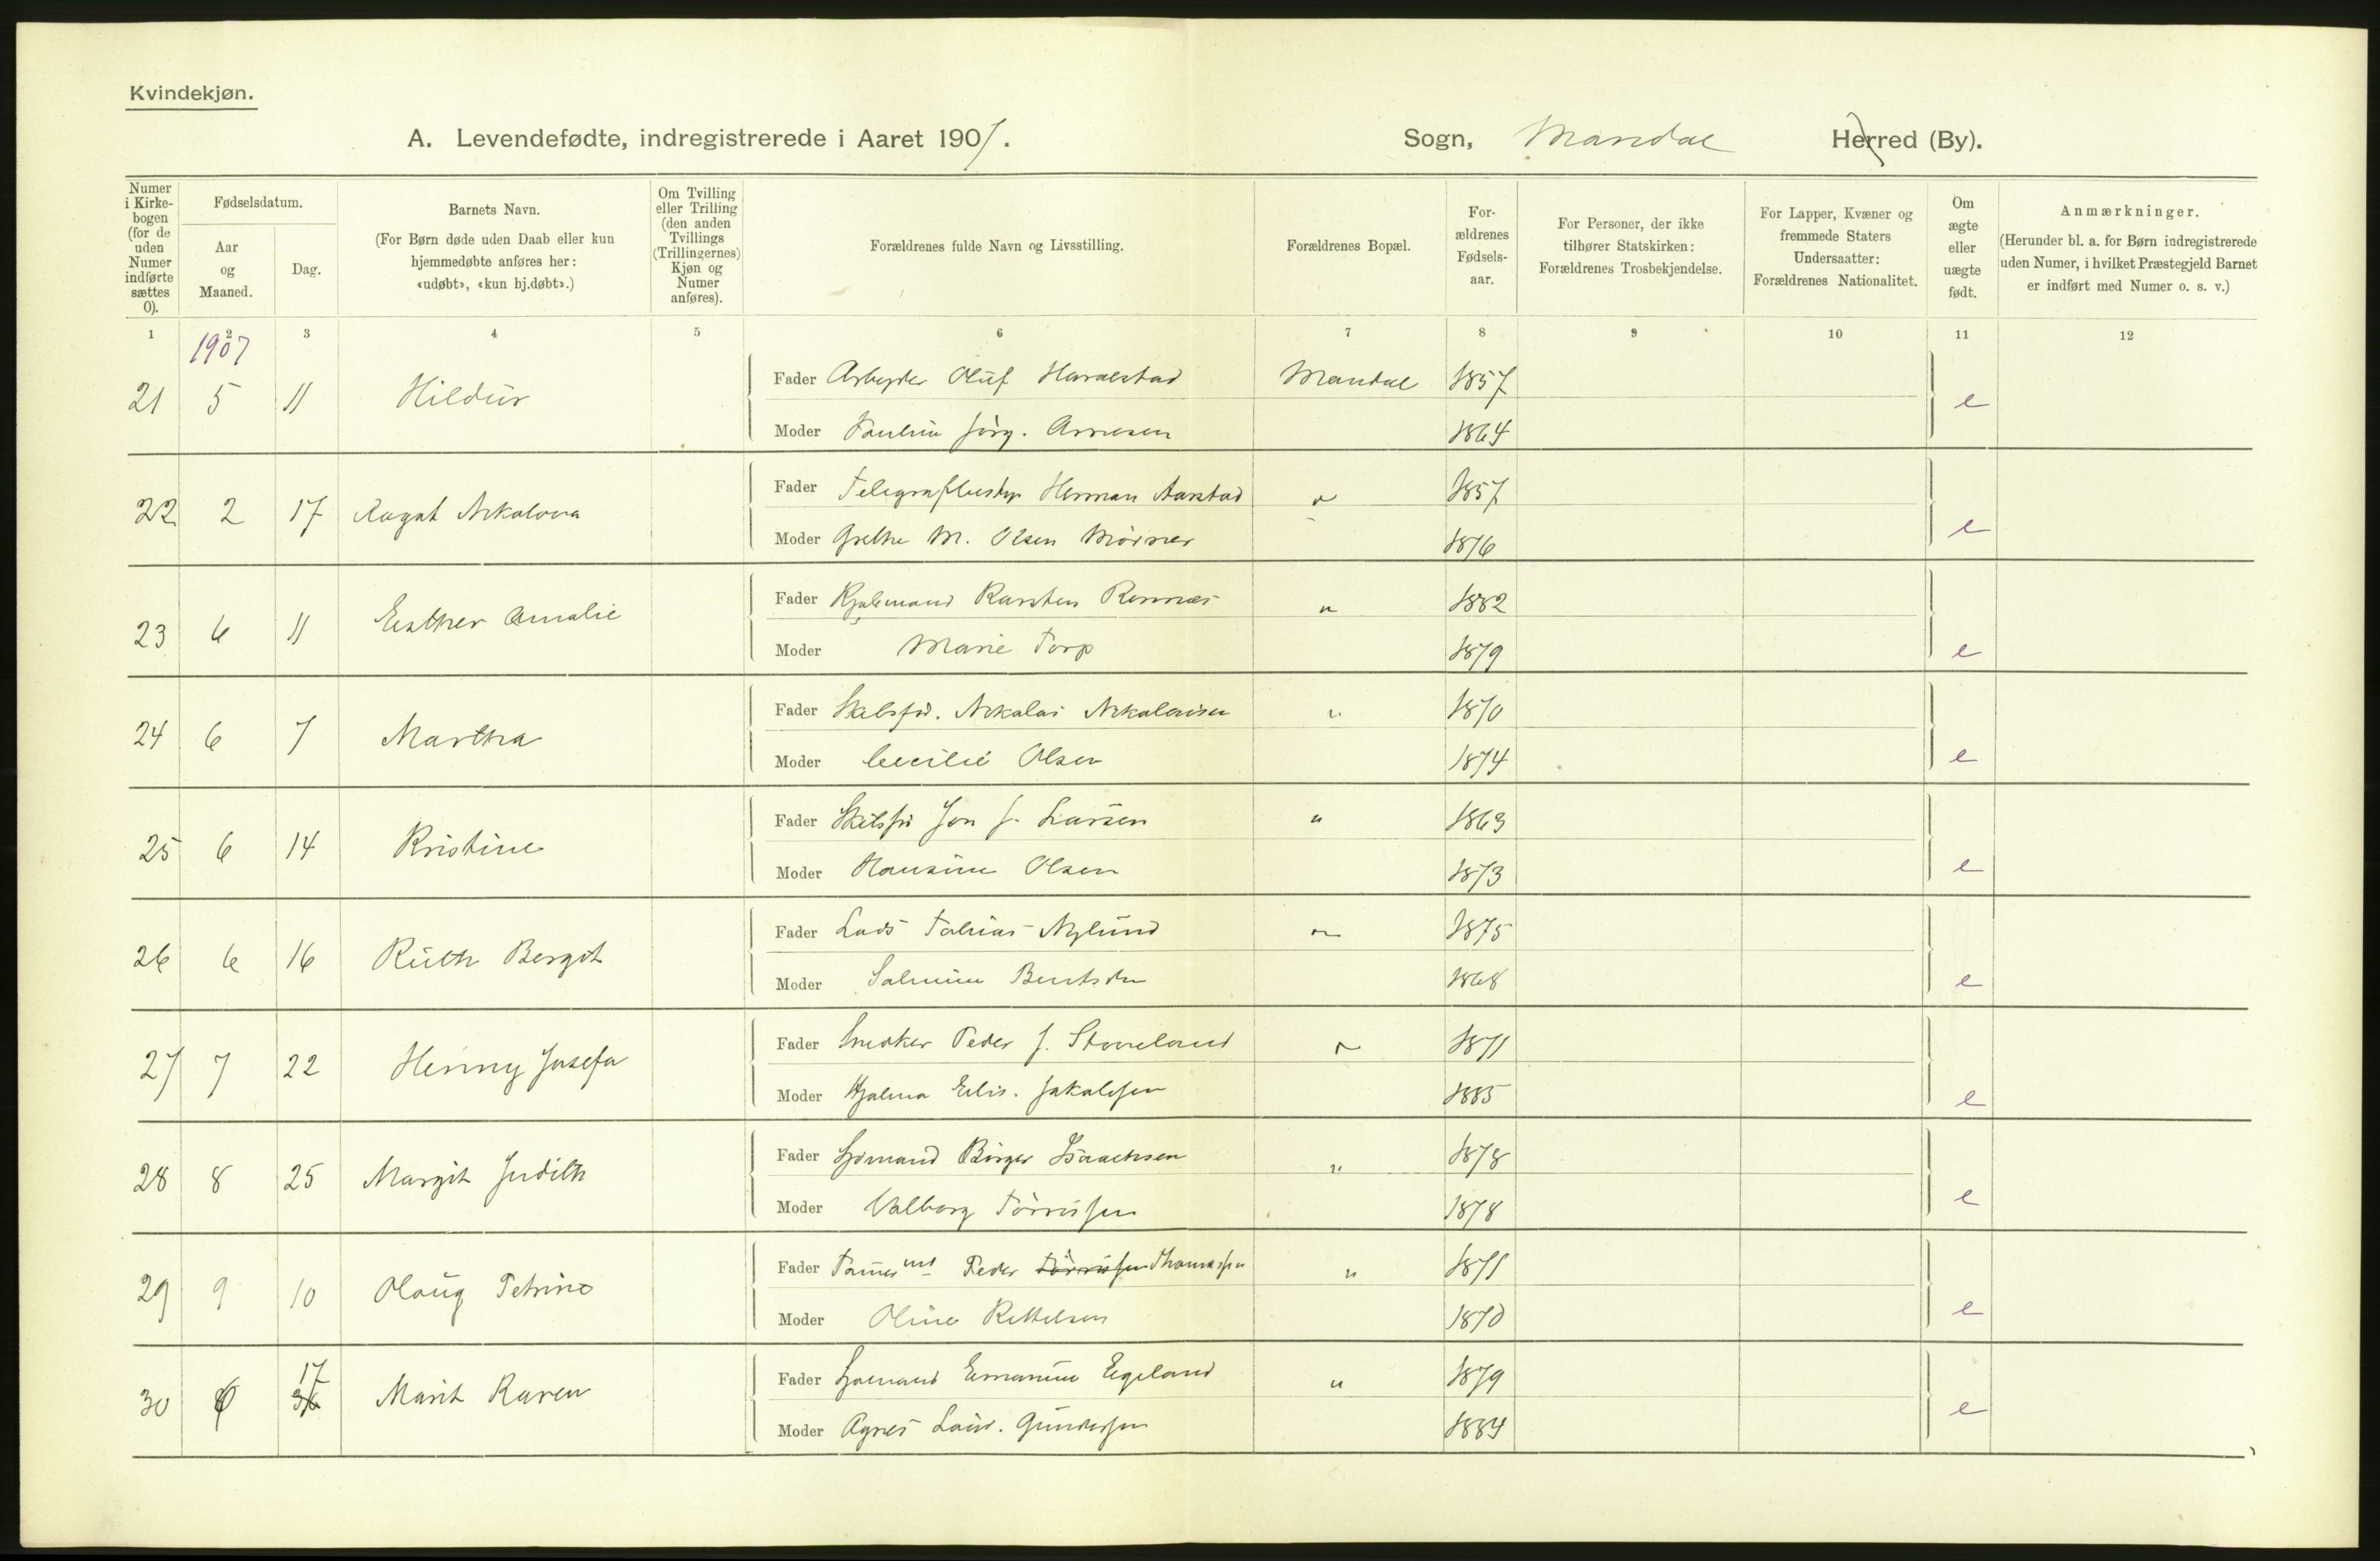 Kvindekjøn.
A. Levendefødte, indregistrerede i Aaret 1907.
Sogn, Mandal Herred (By).
Numer i Kirkebogen (for de uden Numer indførte sættes 0).
Fødselsdatum.
Aar og Maaned.
Dag.
Barnets Navn.
(For Børn døde uden Daab eller kun hjemmedøbte anføres her: «udøbt», «kun hj.døbt».)
Om Tvilling eller Trilling (den anden Tvillings (Trillingernes) Kjøn og Numer anføres).
Forældrenes fulde Navn og Livsstilling.
Forældrenes Bopæl.
Forældrenes Fødselsaar.
For Personer, der ikke tilhører Statskirken: Forældrenes Trosbekjendelse.
For Lapper, Kvæner og fremmede Staters Undersaatter: Forældrenes Nationalitet.
Om ægte eller uægte født.
Anmærkninger.
(Herunder bl. a. for Børn indregistrerede uden Numer, i hvilket Præstegjeld Barnet er indført med Numer o. s. v.)
1 2 3 4 5 6 7 8 9 10 11 12
1907
21 5 11 Hildur Fader Arbeyder Oluf Haraldstad Mandal 1857 e
Moder Pauline Jörg. Arnesen 1864
22 2 17 Ragah Nikolova Fader Telegrafbesty Herman Aarstad " 1857 e
Moder Grethe M. Olsen 1876
23 6 11 Esther Amalie Fader Karsten " 1882 e
Moder Marie Torp 1879
24 6 7 Martha Fader Skibsfø. Nikolai Nikolaisen " 1870 e
Moder Cecilie Olsen 1874
25 6 14 Kristine Fader Skibsfø Jon J. Larsen " 1863 e
Moder Hansine Olsen 1873
26 6 16 Ruth Bergit Fader Lods Tobias Nylund " 1875 e
Moder Salmine Bentsen 1868
27 7 22 Henny Josefa Fader Snedker Peder J. Stoveland " 1871 e
Moder Hjalma Elis. Jakobsen 1885
28 8 25 Margit Judith Fader Sjømand Birger Isaachsen " 1878 e
Moder Valborg Tørrissen 1878
29 9 10 Olaug Petrine Fader Peder Tørrissen Thomassen " 1871 e
Moder Oline Kittelsen 1870
30 17 Marit Karen Fader Sjømand Emanuel Egeland " 1879 e
Moder Agnes Laur. Gundersen 1884